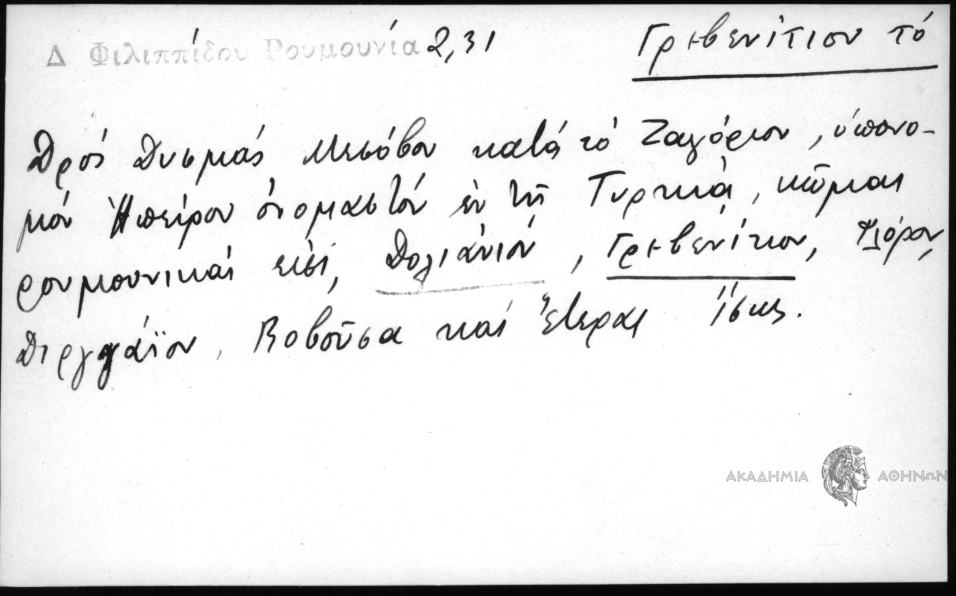 Δ Φιλιππίδου Ρουμουνία 2,31
Γρεβενίτιον τό
Πρός Δυσμάς Μεσόβου κατά τό Ζαγόριον, ὑπονο-
μόν Ἠπείρου ὀνομαστόν ἐν τῇ Τυρκιᾷ, κῶμαι
ρουμουνικαί εἰσί, Δολιάνιον, Γρεβενίτιον, Φλόρον,
Βοβοῦσα καί ἕτεραι ἴσως.
ΑΚΑΔΗΜΙΑ ΑΘΗΝΩΝ